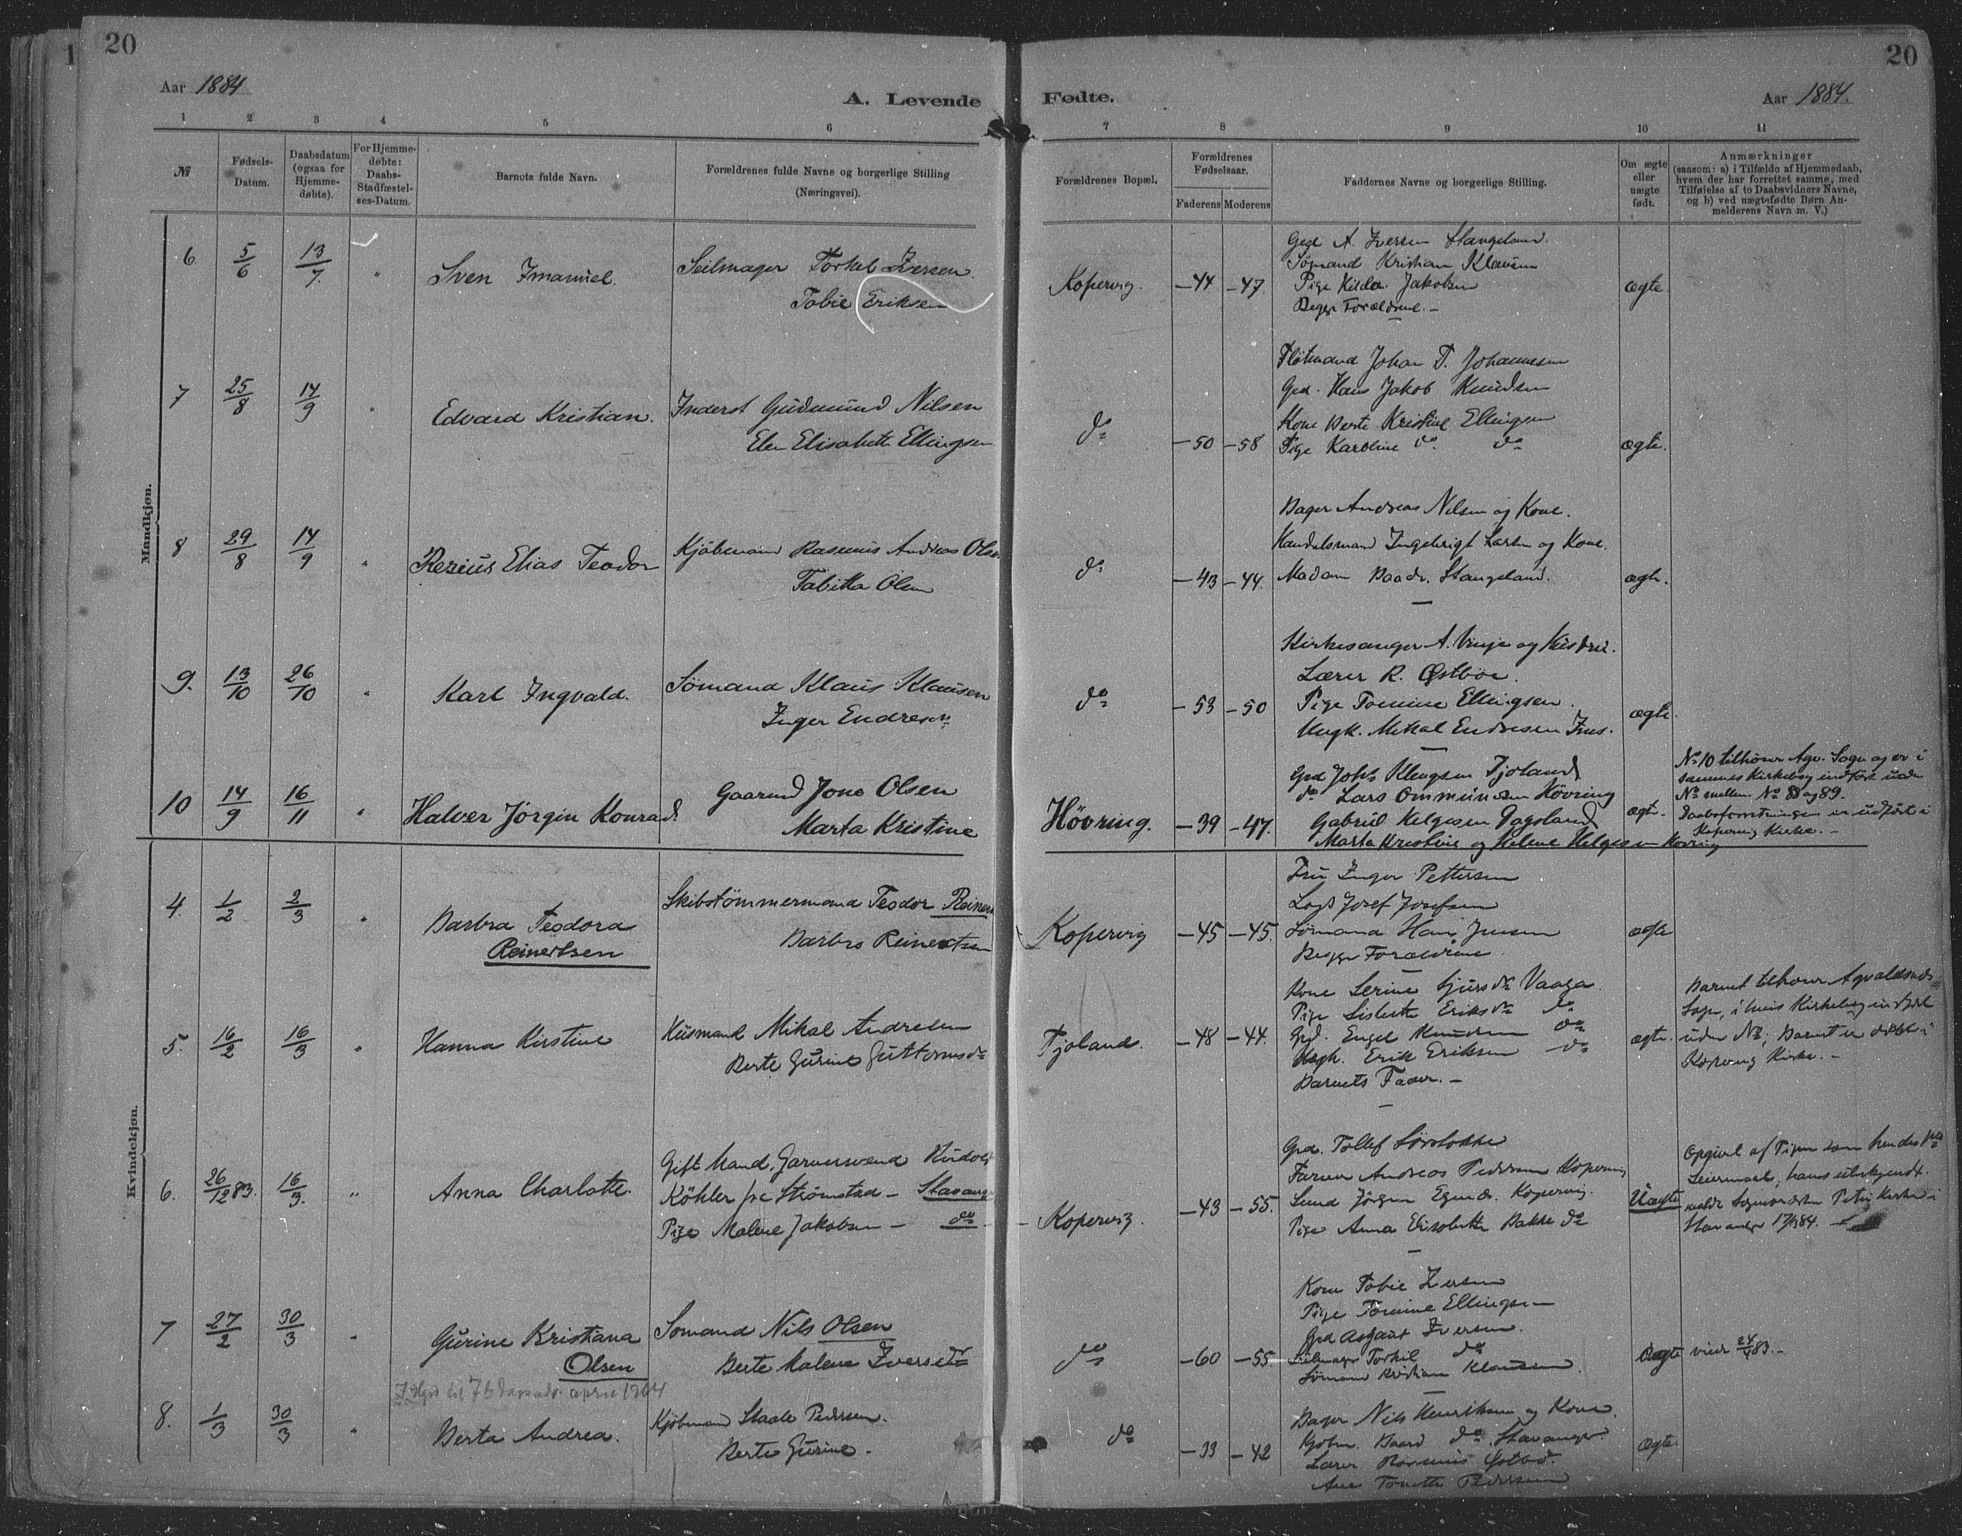 20
20
Aar 1884
A. Levende Fødte.
Aar 1884.
1 2 3 4 5 6 7 8 9 10 11
№
Fødsels-Datum.
Daabsdatum (ogsaa for Hjemmedøbte).
For Hjemmedøbte: Daabs-Stadfæstelses-Datum.
Barnets fulde Navn.
Forældrenes fulde Navne og borgerlige Stilling (Næringsvei).
Forældrenes Bopæl.
Forældrenes Fødselsaar.
Faderens Moderens
Faddernes Navne og borgerlige Stilling.
Om ægte eller uægte født.
Anmærkninger
(saasom: a) i Tilfælde af Hjemmedaab,
hvem der har forrettet samme, med
Tilføielse af to Daabsvidners Navne,
og b) ved uægtefødte Børn Anmelderens Navn m. V.)
Mandkjøn.
6 5/6 13/7 " Sven Imanuel. Seilmager Torkel Iversen. Tobie Eriksen Kopervig. -44 -47. ægte.
Grd A. Iversen Stangeland.
Sømand Kristian Klausen
Pige Hilda Jakobsen
Begge Forældrene. -
7 25/8 14/9 " Edvard Kristian. Inderst Gudmund Nilsen Elen Elisabeth Ellingsen do -50 -58 ægte.
Fløtmand Johan T. Johannessen
Grd. Hans Jakob Knudsen
Kone Berte Kristine Ellingsen
Pige Karoline do. do
8 29/8 14/9 " Resius Elias Teodor Kjøbmand Rasmus Andreas Olsen Tabitta Olsen do -43 -44. ægte.
Bager Andreas Nilsen og Kone.
Handelsmand Ingebrigt Larsen og Kone.
Madam Baads. Stangeland.
9. 13/10 26/10 " Karl Ingvald. Sømand Klaus Klausen Inger Endresen do -53 -50 ægte.
Kirkesanger A. Vinje og Hustru.
Lærer R. Østbøe.
Pige Tomine Ellingsen.
Ungk. Mikal Endresen
10 14/9 16/11 " Halver Jørgin Konrad. Gaarmd Jone Olsen Marta Kristine Høvring. -39 -47. ægte.
Grd Johs Klengsen Tjoland
do Lars Ommundsen Høvring
Gabriel Helgesen Dagsland
Marta Kristine og Helene Helgesen Høvring
No 10 tilhører Agv. Sogn og er i
sammes Kirkebog indført under
No mellem No 88 og 89.
Daabsforretningen er udført i
Kopervig Kirke. -
Kvindekjøn.
4. 1/2 2/3 " Barbra Teodora Reinertsen Skibstømmermand Teodor Reinert Barbro Reinertsen Kopervig -45 -45. ægte
Fru Inger Pettersen
Lods Josef Josefsen
Sømand Hans Jensen
Begge Forældrene.
5. 16/2 16/3 " Hanna Kirstine Husmand Mikal Andresen Berte Gurine Guttormsdr Tjoland. -48 -44. ægte.
Kone Serine Sjursdr Vaaga.
Pige Lisbete Eriksdr do
Grd. Engel Knudsen do
Ungk. Erik Eriksen do
Barnets Fader. -
Barnet tilhører Agvaldsnæs
Sogn, i hvis Kirkebog indført
under No; Barnet er døbt i
Kopervig Kirke. -
6. 26/12 83. 16/3. " Anna Charlotte. Gift Mand, Garversvend Rudolf
Köhler fra Strømstad - Stavanger
Pige Malene Jakobsen - do
Kopervig. -43 -55. Uægte
Grd. Tollef
Farver Andreas Pedersen Kopervig
Svend Jørgen Kopervig.
Pige Anna Elisabeth Bakke do
Opgivet af Pigen som hendes
Leiermaal, hans
Petri Kirke i
Stavanger 17/3 84. -
7 27/2 30/3 " Gurine Kristiana Olsen Sømand Nils Olsen Berte Malene Iversdr do -60 -55 ægte viede 24/4 83. -
Kone Tobie Iversen
Pige Tomine Ellingsen
Grd Asgaut Iversen.
Seilmager Torkil do
Sømand Kristian Klausen.
april 1964
8. 1/3 30/3 " Berta Andrea. Kjøbmand Staale Pedersen. Berte Gurine. do -33 -42 ægte
Bager Nils Henriksen og Kone.
Kjøbm. Baard do. Stavanger.
Lærer Rasmus Østbø.
Ane Tomette Pedersen